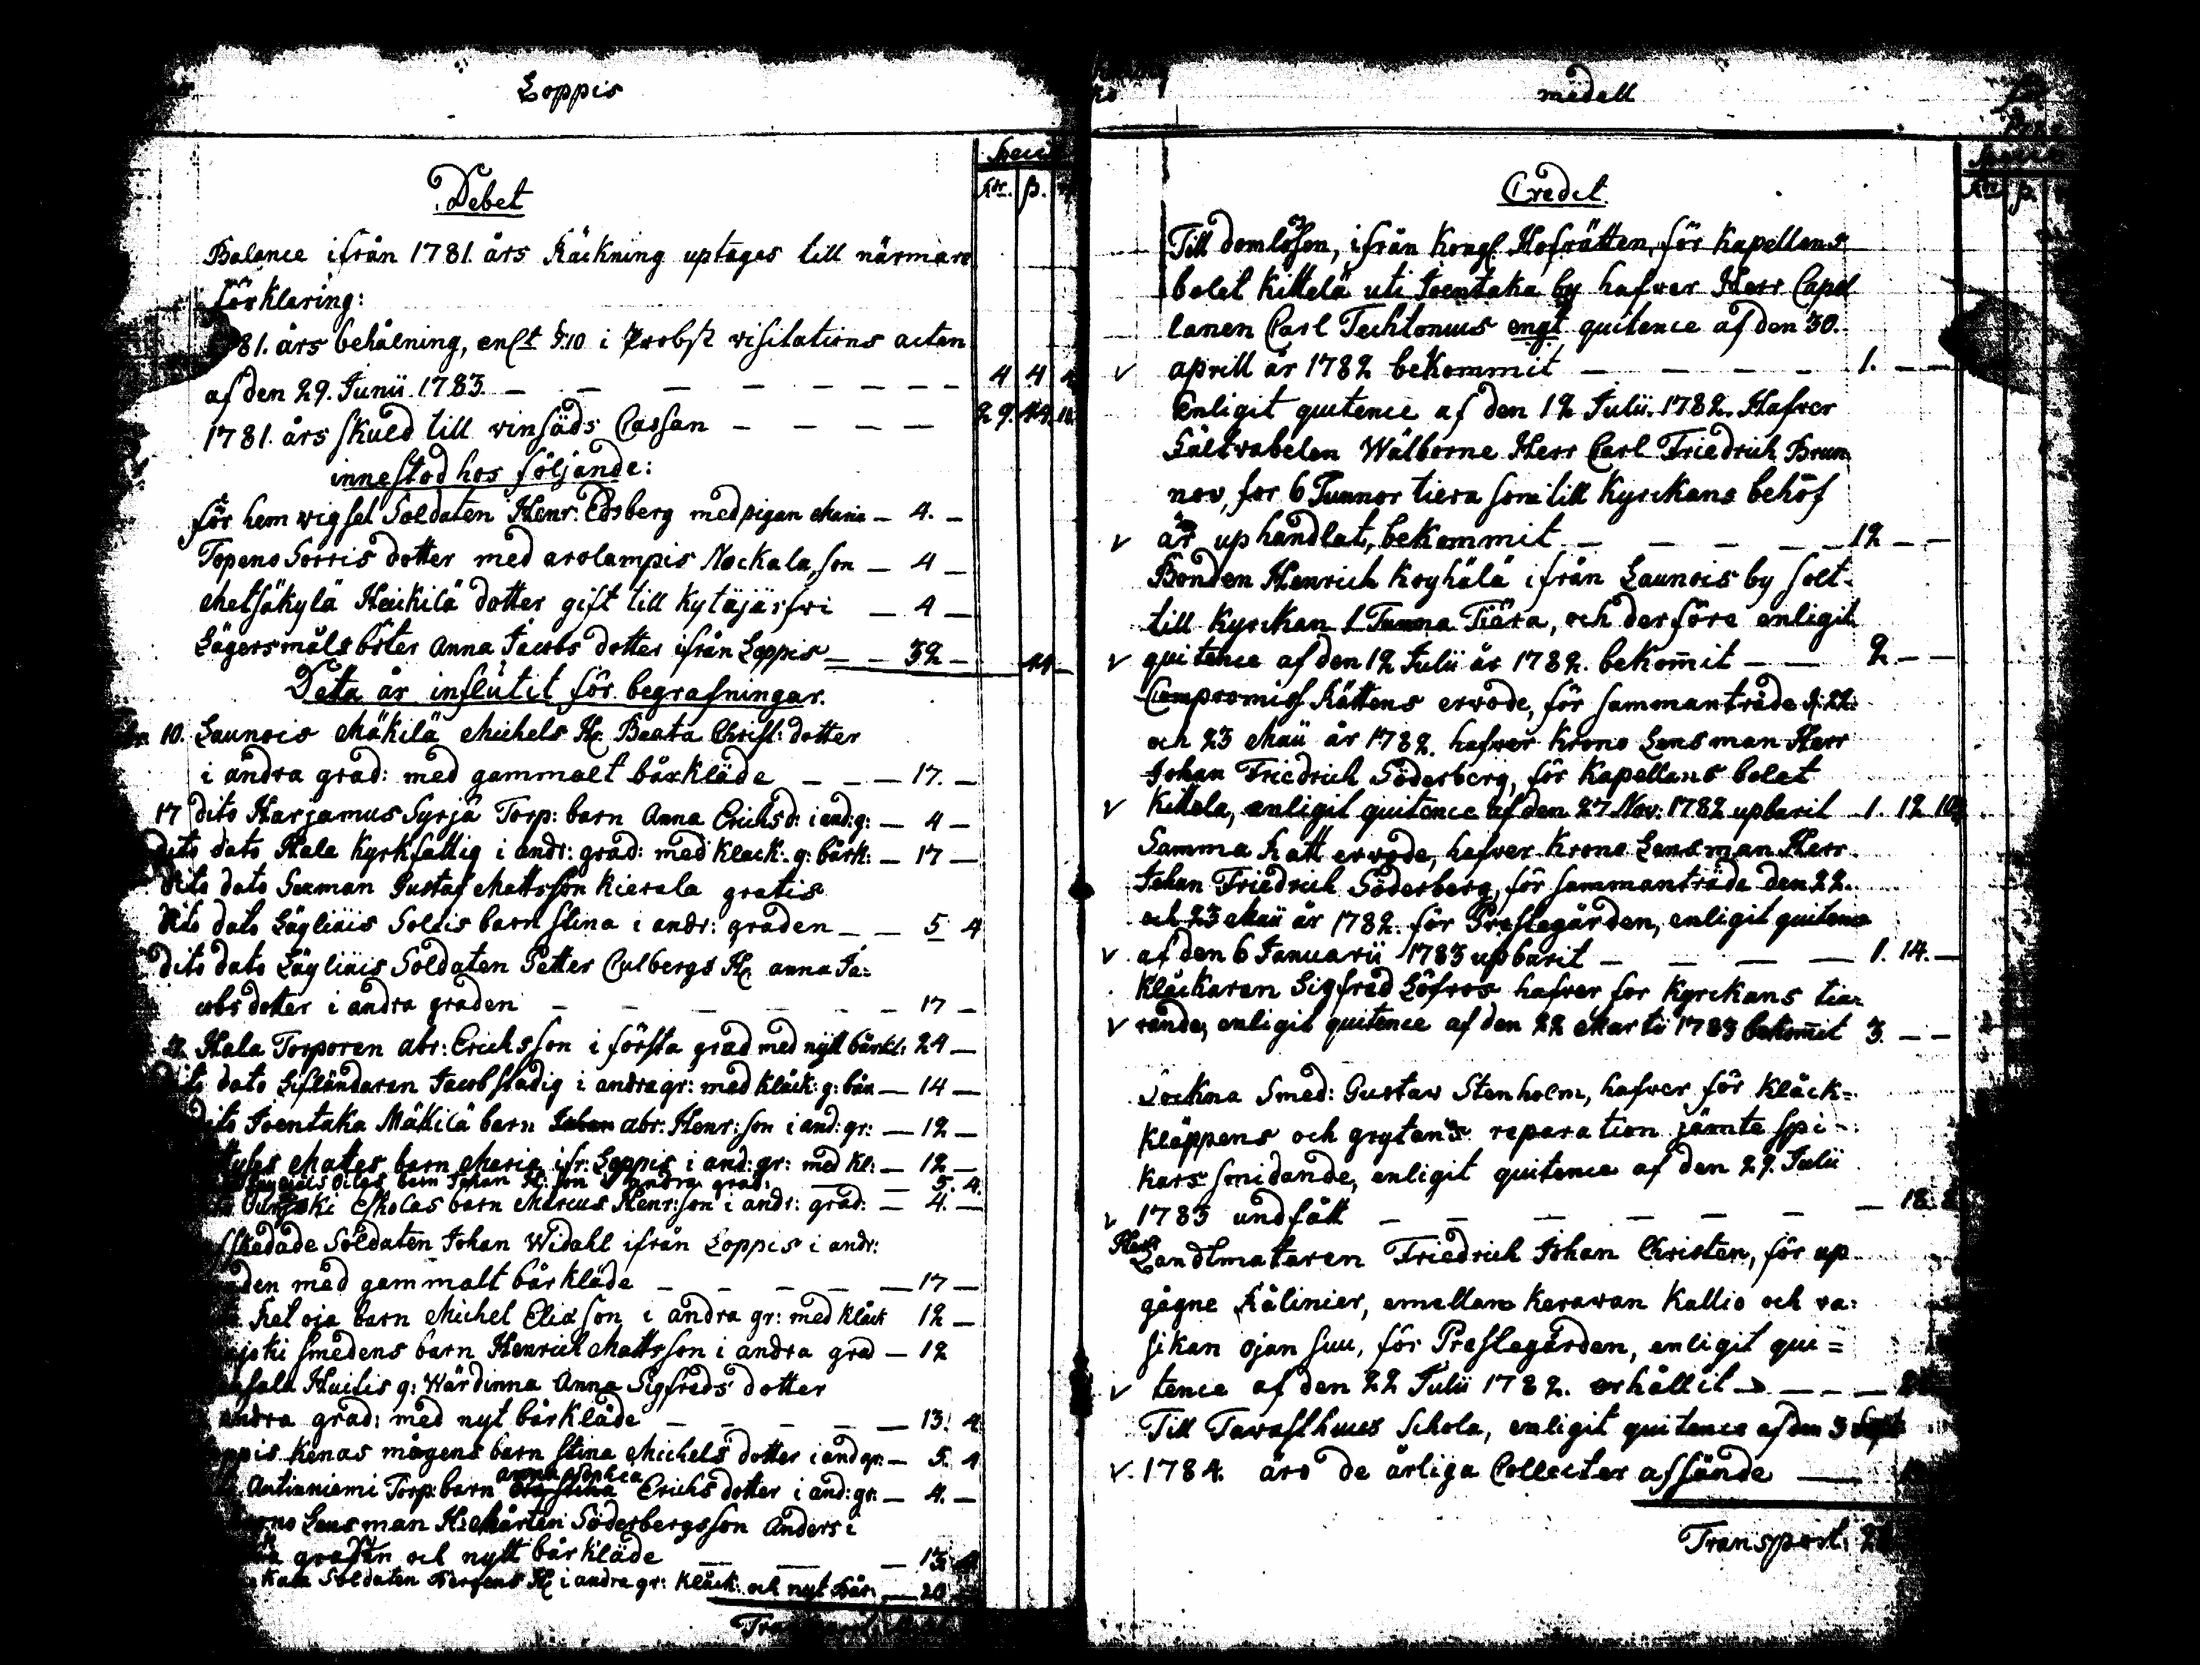 Loppis
Debet
Rdr. ß.
Balance ifrån 1781. års Räckning uptages till närmare
förklaring:
81. års behålning, enlt §.10 i Probst visitations acten
af den 29. Junii 1783. — 4 4
1781. års skuld till vinsäds Cassan — 29.
innestod hos följande:
för hem wigsel Soldaten Henr: Edsberg med pigan Maria — 4. —
Topeno Sorris dotter med arolampis Nockala son — 4 —
Metsäkylä Heikilä dotter gift till Kytäjärfwi — 4 —
Lägersmåls böter Anna Jacobs dotter ifrån Loppis — 32 —
Deta är influtit för begrafningar.
10. Launois Mäkilä Michels H: Beata Christ: dotter
i andra grad: med gammalt bårkläde — 17. —
17 dito Harjamus Syrjä Torp: barn Anna Erichsd: i and: g: — 4 —
dito dato Hala Kyrkfattig i andr: grad: med klock: g: bårk: — 17 —
dito dato Sexman Gustaf Mattsson Kierala gratis
dito dato Läyliäis Soldis barn Stina i andr: graden — 5 4
dito dato Läyliäis Soldaten Petter Culbergs H: Anna Ja:
cobs dotter i andra graden — 17 —
Hala Torporen abr: Erichsson i första grad med nytt bårkl: 24 —
dito dato Jacob stadig i andra gr: med klåck: g: bår — 14 —
dito Joentaka Mäkilä barn abr: Henr: son i and: gr: — 12 —
Mattes barn Maria ifr: Loppis i and: gr: med kl: — 12 —
barn Johan H: son i andra grad: — 5. 4.
Eskolas barn Marcus Henr: son i andr: grad: — 4. —
Soldaten Johan Widahl ifrån Loppis i andr:
den med gammalt bårkläde — 17 —
barn Michel Eliæ son i andra gr: med klåck 12 —
joki smedens barn Henrich Mattsson i andra grad — 12
g: Wärdinna Anna Sigfreds dotter
andra grad: med nyt bårkläde — 13. 4
Kenas mågens barn Stina Michels dotter i and gr: — 5. 4
anna sophia
Antinniemi Torp: barn Erichs dotter i and: gr: — 4. —
Lensman H: Mårten Söderbergs son Anders i
graden och nytt bårkläde — 13 4
Soldaten H: i andra gr: klåck: och nyt bår: — 20
medell
Credit
Rdr ß.
Till domlösen, ifrån Kongl. Hofrätten, för Kapellans
bolet Kittelä uti Joentaka by hafwer Herr Capel
lanen Carl Techtonius engt quitence af den 30.
v aprill år 1782 bekommit — 1. — —
Enligit quitence af den 12 Julii. 1782. Hafwer
Fältwabelen Wälborne Herr Carl Friedrich Brun
nov, for 6 Tunnor tiera som till Kyrckans behöf
v är uphandlat, bekommit — 12 — —
Bonden Henrich Koyhälä ifrån Launois by solt
till Kyrckan 1 Tunna Tiära, och derföre enligit
v quitence af den 12 Julii år 1782. bekom̄it — 2 — —
Compromiss Rättens erwode, för sammanträde d: 22:
och 23 Maii år 1782. hafwer Krono Lensman Herr
Johan Friedrich Söderberg, för Kapellans bolet
v Kittela, enligit quitence af den 27 Nov: 1782 upbarit 1. 12 10
Samma Rätt erwode, hafwer Krono Lensman Herr
Johan Friedrich Söderberg, för sammanträde den 22.
och 23 Maii år 1782. för Prestegården, enligit quitence
v af den 6 Januarii 1783 upbarit — 1. 14. —
Klåckaren Sigfred Löfros hafwer for Kyrckans tiæ
v rande, enligit quitence af den 22 Martii 1783 bekom̄it 3. — —
Sockna Smed: Gustaw Stenholm, hafwer för klåck=
kläppens och grytan's reparation jämte spi-
kars smidande, enligit quitence af den 29. Julii
v 1783 undfått — 18.
Herr
Landtmätaren Friedrich Johan Christen, för up
gågne Rålinier, emellan Karawan Kallio och wa:
sikan ojan suu, för Prestegården, enligit qui=
v tence af den 22 Julii 1782. erhållit —
Till Tawasthus Schola, enligit quitence af den 3 Sept
v. 1784. äro de årliga Collecter assände —
Transport.